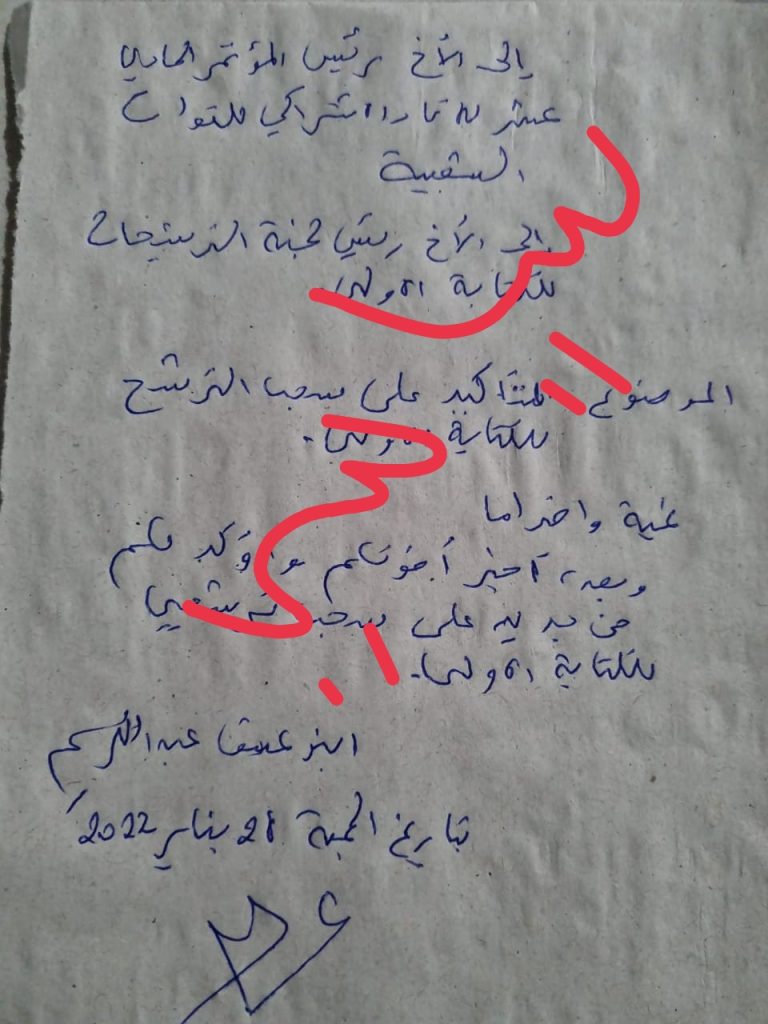 إلى الأخ رئيس المؤتمر الحادي
عشر للاتحاد الاشتراكي للقوات
الشعبية
إلى الأخ رئيس لجنة الترشيحات
للكتابة الأولى
الموضوع: التأكيد على سحب الترشح
للكتابة الأولى.
تحية واحتراما
وبعد، أخبر أخوتكم وأؤكد لكم
من جديد على سحب ترشحي
للكتابة الأولى.
ابن عتيق عبد الكريم
بتاريخ الجمعة 28 يناير 2022